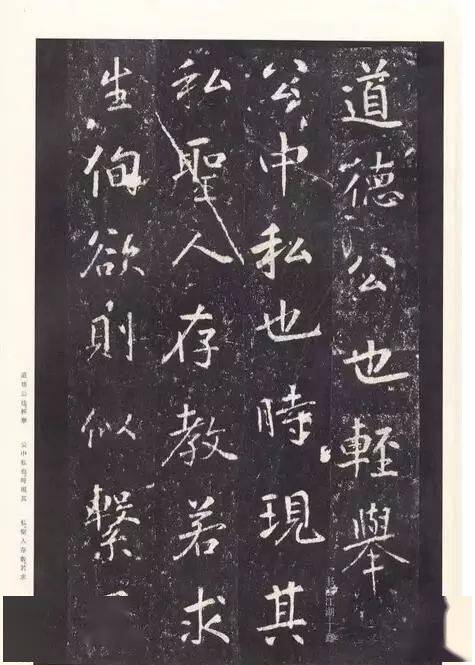 道德公也輕舉
公中私也時現其
私聖人存教若求
生徇欲則似繫
道德公也輕舉 公中私也時現其 私聖人存教若求